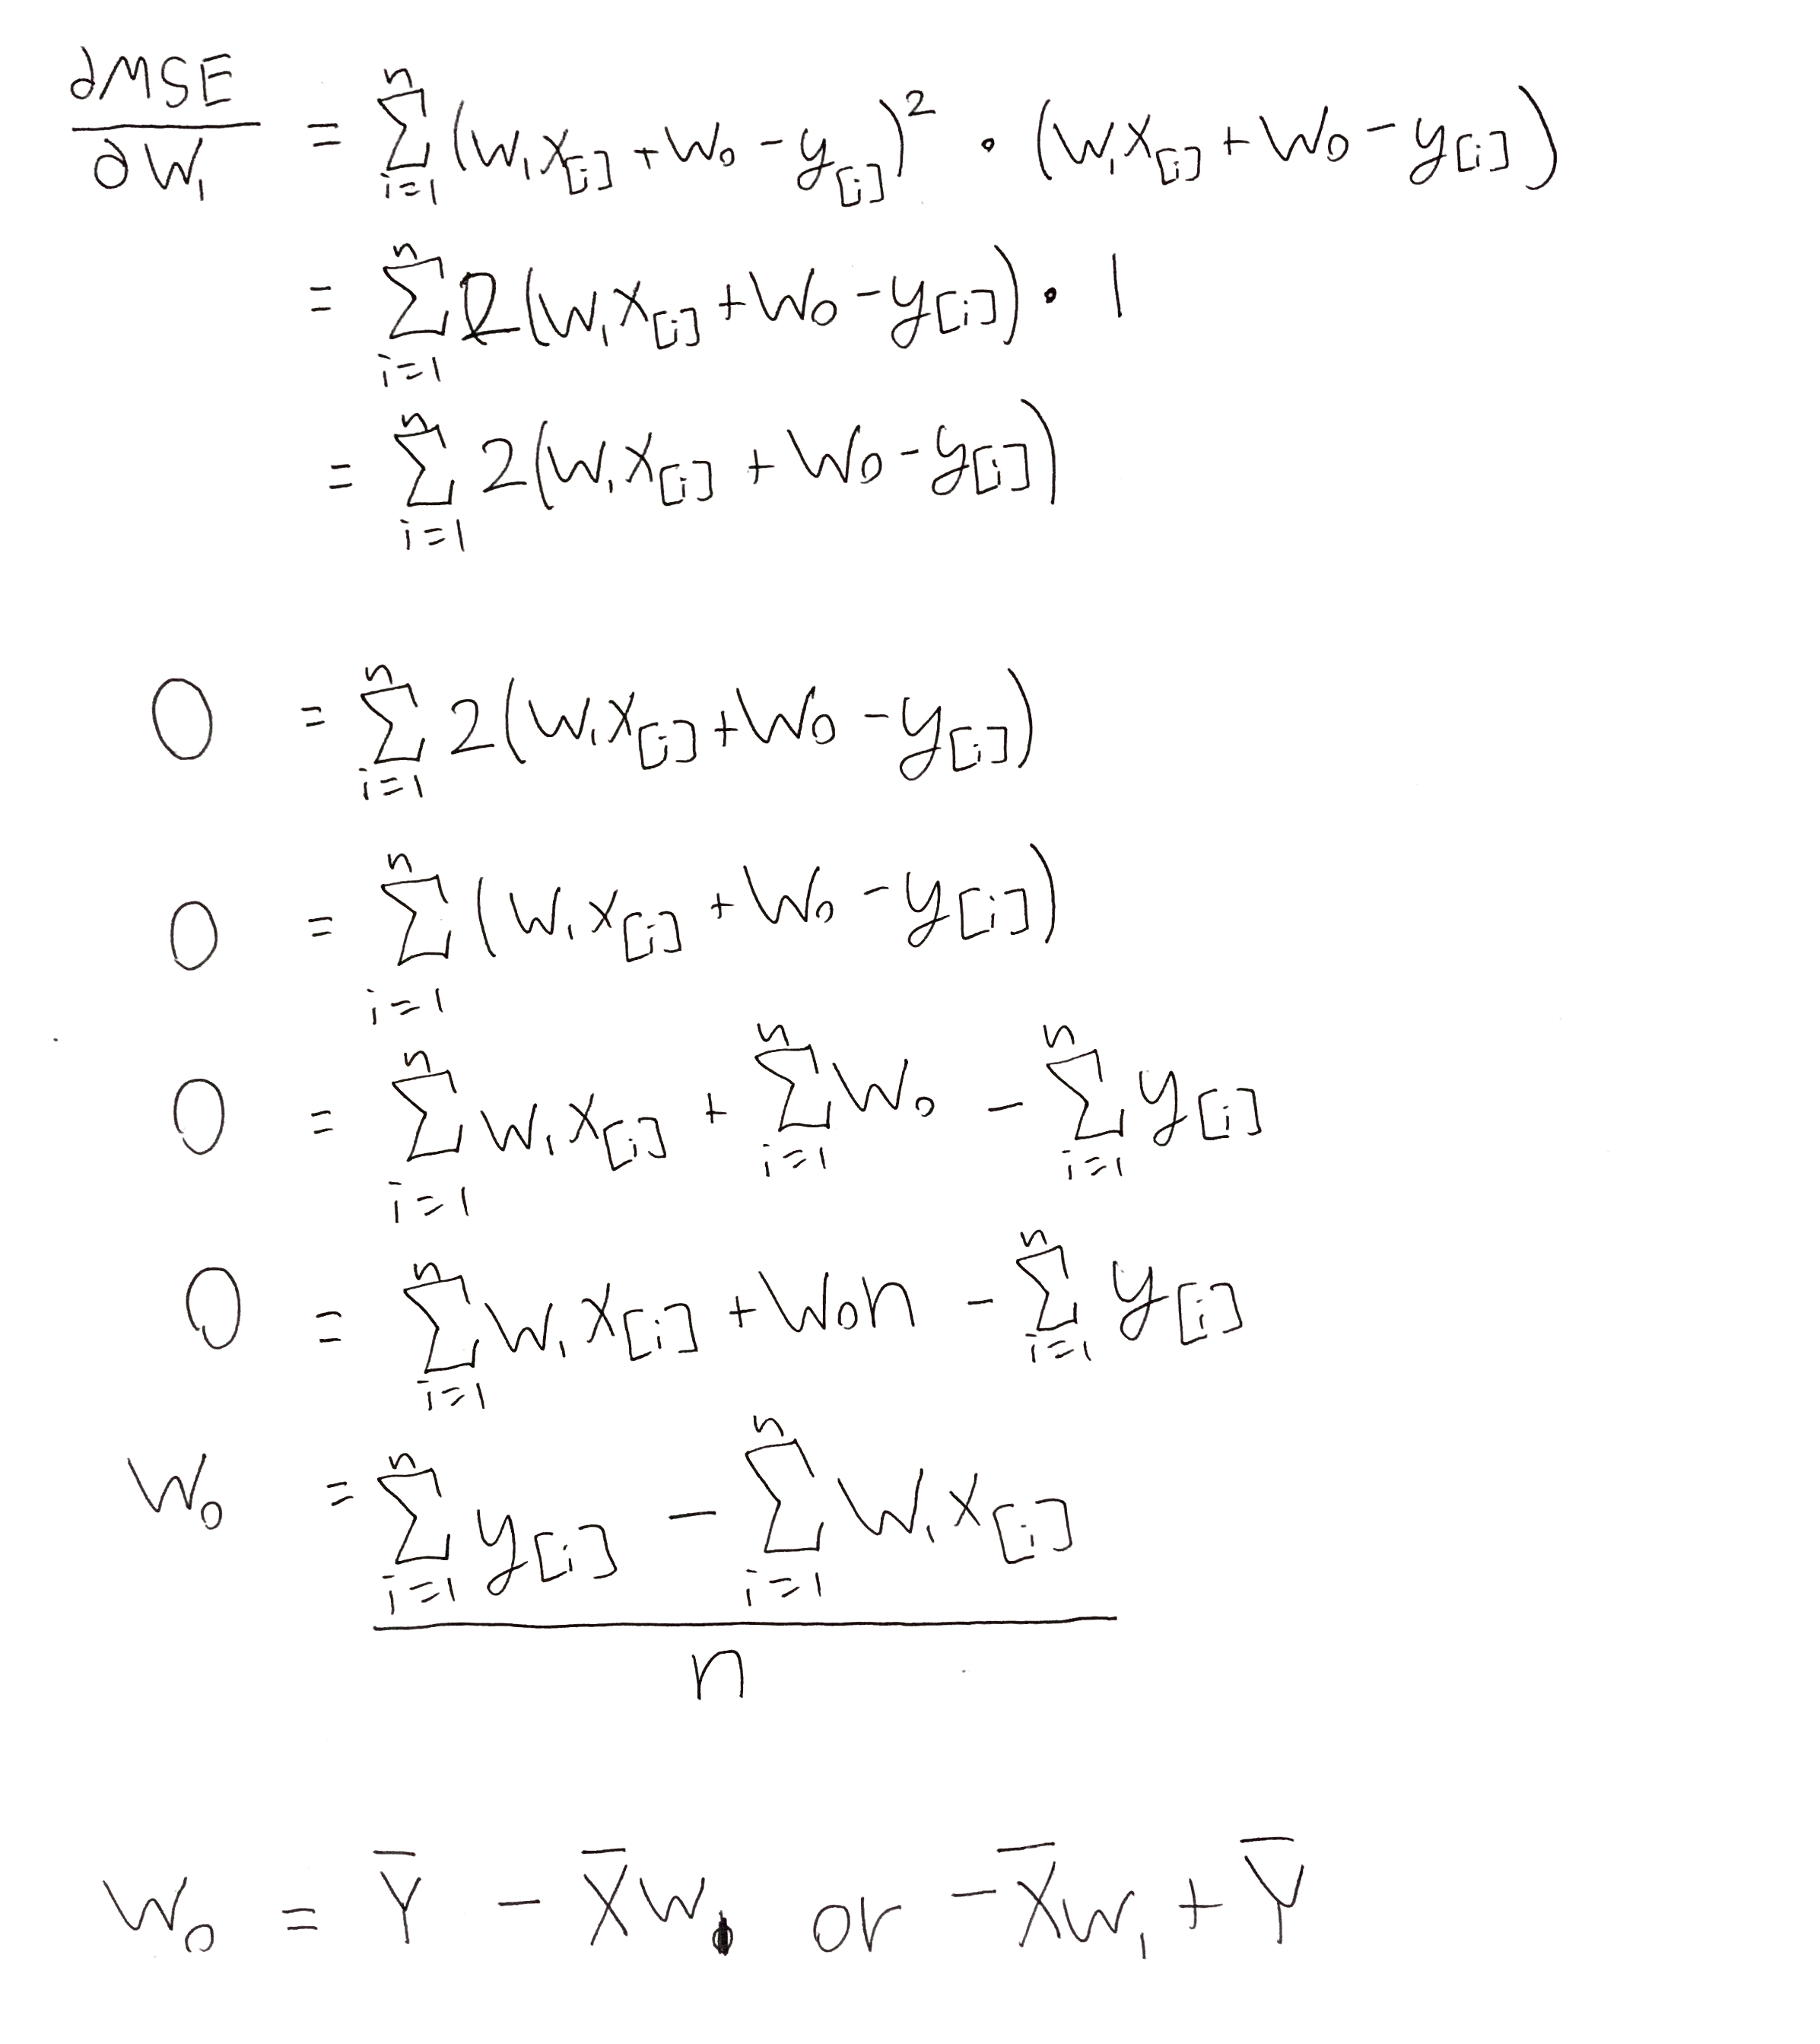 ∂MSE/∂W₁ = ∑ⁿᵢ₌₁ (W₁x[i] + W₀ - y[i])² • (W₁x[i] + W₀ - y[i])
= ∑ⁿᵢ₌₁ 2(W₁x[i] + W₀ - y[i]) • 1
= ∑ⁿᵢ₌₁ 2(W₁x[i] + W₀ - y[i])
0 = ∑ⁿᵢ₌₁ 2(W₁x[i] + W₀ - y[i])
0 = ∑ⁿᵢ₌₁ (W₁x[i] + W₀ - y[i])
0 = ∑ⁿᵢ₌₁ W₁x[i] + ∑ⁿᵢ₌₁ W₀ - ∑ⁿᵢ₌₁ y[i]
0 = ∑ⁿᵢ₌₁ W₁x[i] + W₀n - ∑ⁿᵢ₌₁ y[i]
W₀ = (∑ⁿᵢ₌₁ y[i] - ∑ⁿᵢ₌₁ W₁x[i]) / n
W₀ = Y̅ - X̅W₁ or -X̅W₁ + Y̅